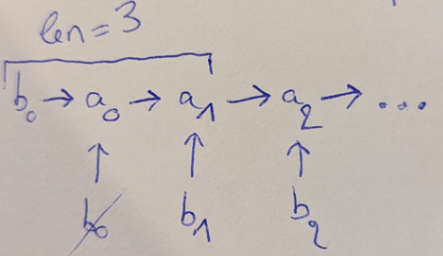 len = 3
b₀ → a₀ → a₁ → a₂ → ...
↑ ↑ ↑
b₀ b₁ b₂